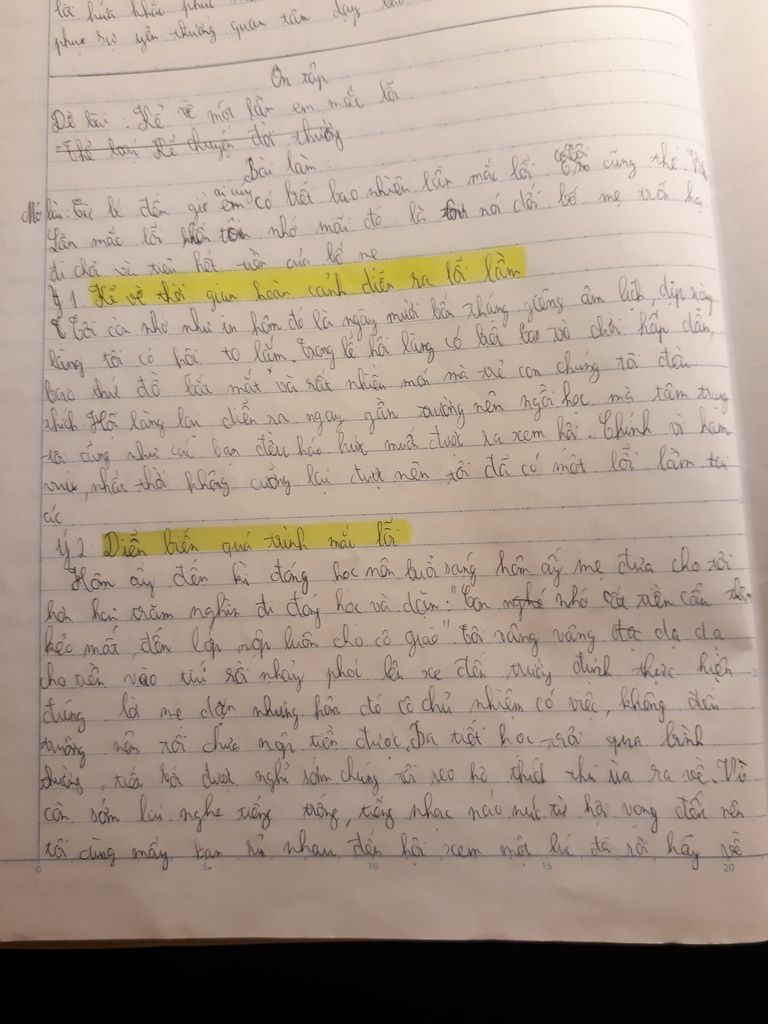 lời hứa khắc phục
phục sự yêu thương quan tâm dạy bảo
Ôn tập
Đề bài: Kể về một lần em mắc lỗi
Thể loại: Kể chuyện đời thường
Bài làm:
Mở bài: Từ bé đến giờ ai cũng có biết bao nhiêu lần mắc lỗi. Tôi cũng thế.
Lần mắc lỗi tôi nhớ mãi đó là nói dối bố mẹ trốn học
đi chơi và tiêu hết tiền của bố mẹ
ý 1. Kể về thời gian hoàn cảnh diễn ra lỗi lầm
Tôi còn nhớ như in hôm đó là ngày mười bốn tháng giêng âm lịch, dịp này
làng tôi có hội to lắm. Trong lễ hội làng có biết bao trò chơi hấp dẫn,
bao thứ đồ bắt mắt và rất nhiều món mà trẻ con chúng tôi đều
thích. Hội làng lại diễn ra ngay gần trường nên ngồi học mà tâm trạng
tôi cũng như các bạn đều háo hức muốn được ra xem hội. Chính vì ham
vui, nhất thời không cưỡng lại được nên tôi đã có một lỗi lầm tai
ác
ý 2: Diễn biến quá trình mắc lỗi
Hôm ấy đến kì đóng học nên buổi sáng hôm ấy mẹ đưa cho tôi
hơn hai trăm nghìn đi đóng học và dặn: "Con nhớ cất tiền cẩn thận
kẻo mất, đến lớp nộp luôn cho cô giáo" Tôi vâng vâng dạ dạ
cho tiền vào túi rồi nhảy phốc lên xe đến trường định thực hiện
đúng lời mẹ dặn nhưng hôm đó cô chủ nhiệm có việc, không đến
trường nên tôi chưa nộp tiền được. Ba tiết học trôi qua bình
thường, tiết cuối được nghỉ sớm chúng tôi reo hò thích thú ùa ra về. Về
còn sớm lại nghe tiếng trống, tiếng nhạc náo nức từ hội vọng đến nên
tôi cùng mấy bạn rủ nhau đến hội xem một lúc đã rồi hãy về
0 5 10 15 20